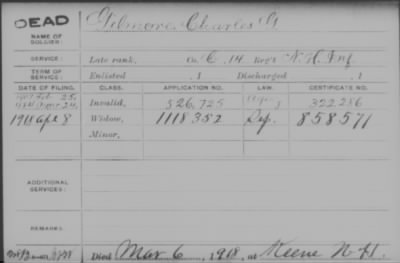 DEAD
Gilmore, Charles G.
NAME OF SOLDIER:
SERVICE: Late rank, Co. C. 14 Reg't N.H. Inf.
TERM OF SERVICE: Enlisted , 1 Discharged , 1
DATE OF FILING. CLASS. APPLICATION NO. LAW. CERTIFICATE NO.
Invalid, 526,725 322286
1918 Apl 8 Widow, 1118352 Rep. 858571
Minor,
ADDITIONAL SERVICES:
REMARKS:
Died Mar 6, 1918, at Keene N.H.